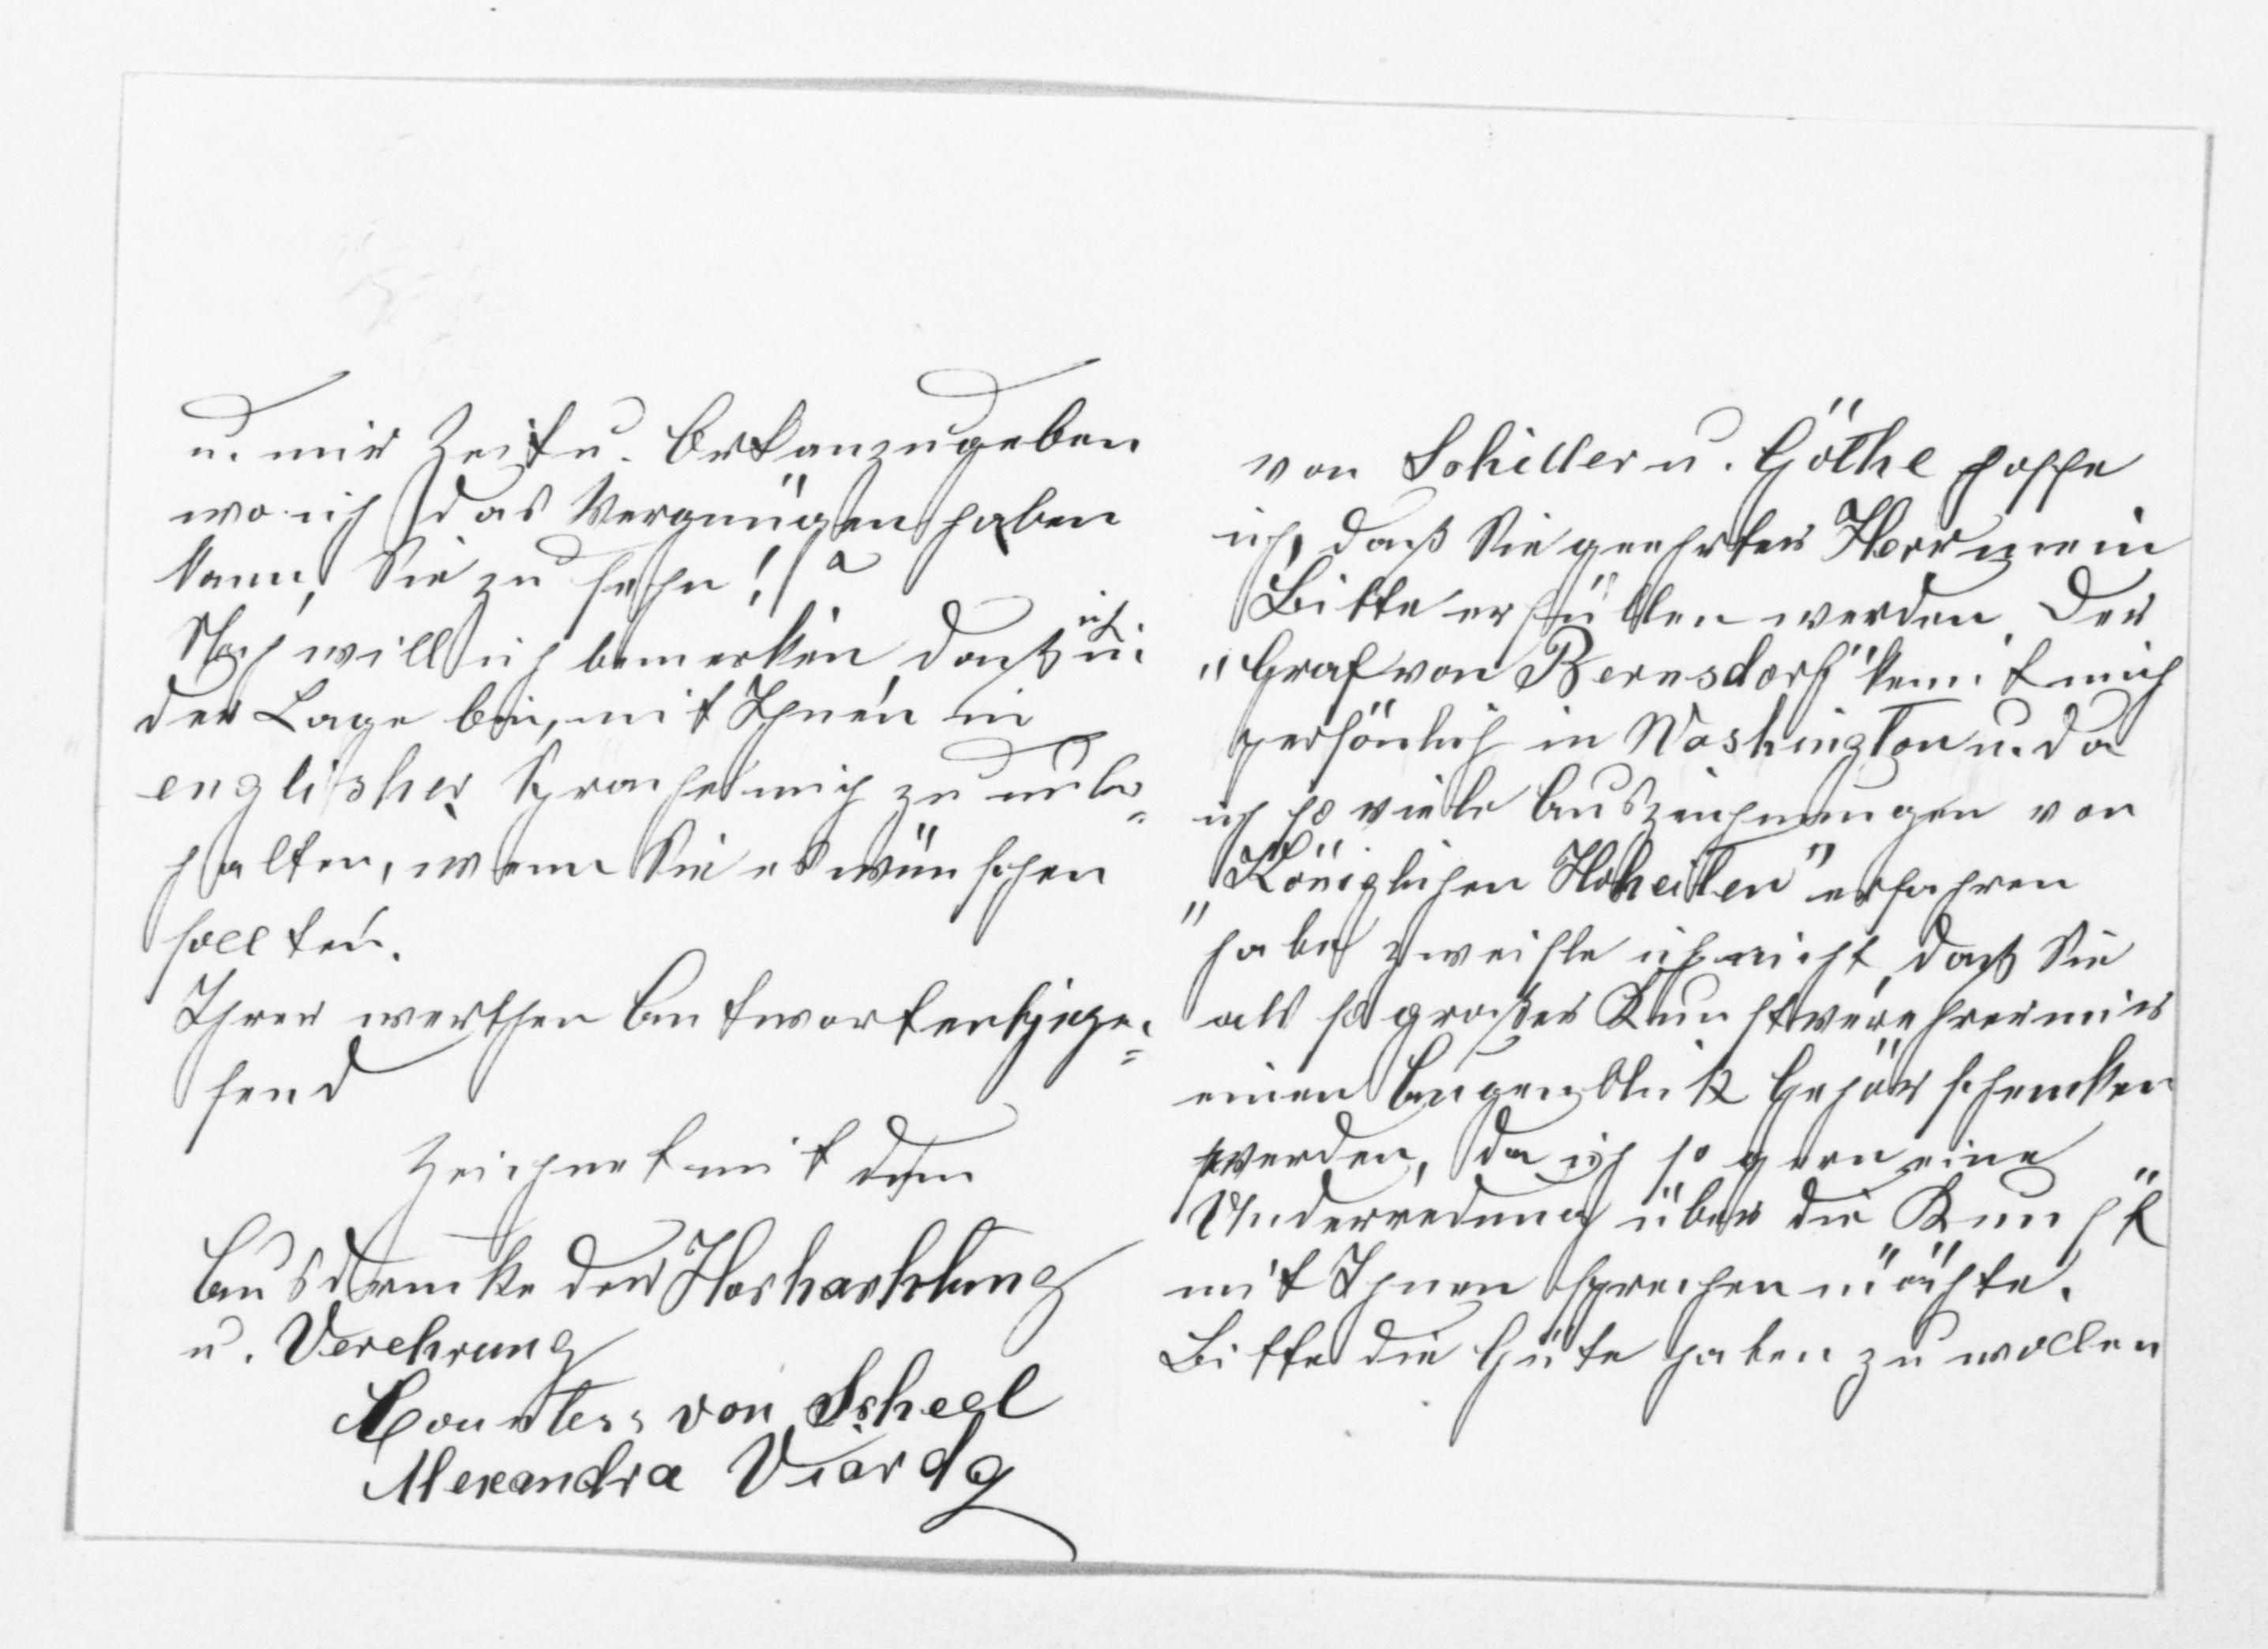 u. mir Zeit u. Ort anzugeben
wo ich das Vergnügen haben
kann, Sie zu sehn!
Noch will ich bemerken, daß ich in
der Lage bin, mit Ihnen in
englisher Sprache mich zu unter=
halten, wenn Sie es wünschen
sollten.
Ihrer werthen Antwort entgege=
send
zeichnet mit dem
Ausdrucke der Hochachtung
u. Verehrung
Countess von Scheel
Alexandra Viardy
von Schiller u. Göthe hoffe
ich, daß Sie geehrter Herr mein
Bitte erfüllen werden. Der
"Graf von Bernsdorf" kennt mich
persönlich in Washington u. da
ich so viele Auszeichnungen von
"Königlichen Hoheiten" erfahren
habe zweifle ich nicht, daß Sie
als so großer Kunstverehrer mir
einen Augenblick Gehör schenken
werden, da ich so gern eine
Underredung über die Kunst
mit Ihnen sprechen möchte.
Bitte die Güte haben zu wollen